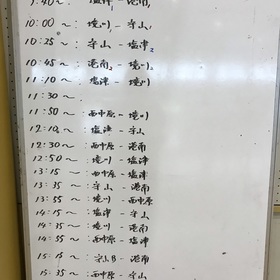 9:40~: 塩津 - 港南,
10:00 ~: 境川, - 守山,
10:25 ~: 守山 - 塩津₂
10:45 ~: 港南₂ - 境川₂
11:10 ~: 塩津 - 境川
11:30 ~
11:50 ~: 西中原 - 境川
12:10 ~: 塩津 - 守山
12:30 ~: 西中原 - 港南
12:50 ~: 境川 - 塩津
13:15 ~: 西中原 - 塩津
13:35 ~: 守山 - 港南
13:55 ~: 境川 - 西中原
14:15 ~: 塩津 - 守山
14:35 ~: 境川 - 港南
14:55 ~: 西中原 - 塩津
15:15 ~: 守山B - 港南
15:35 ~: 西中原 - 守山